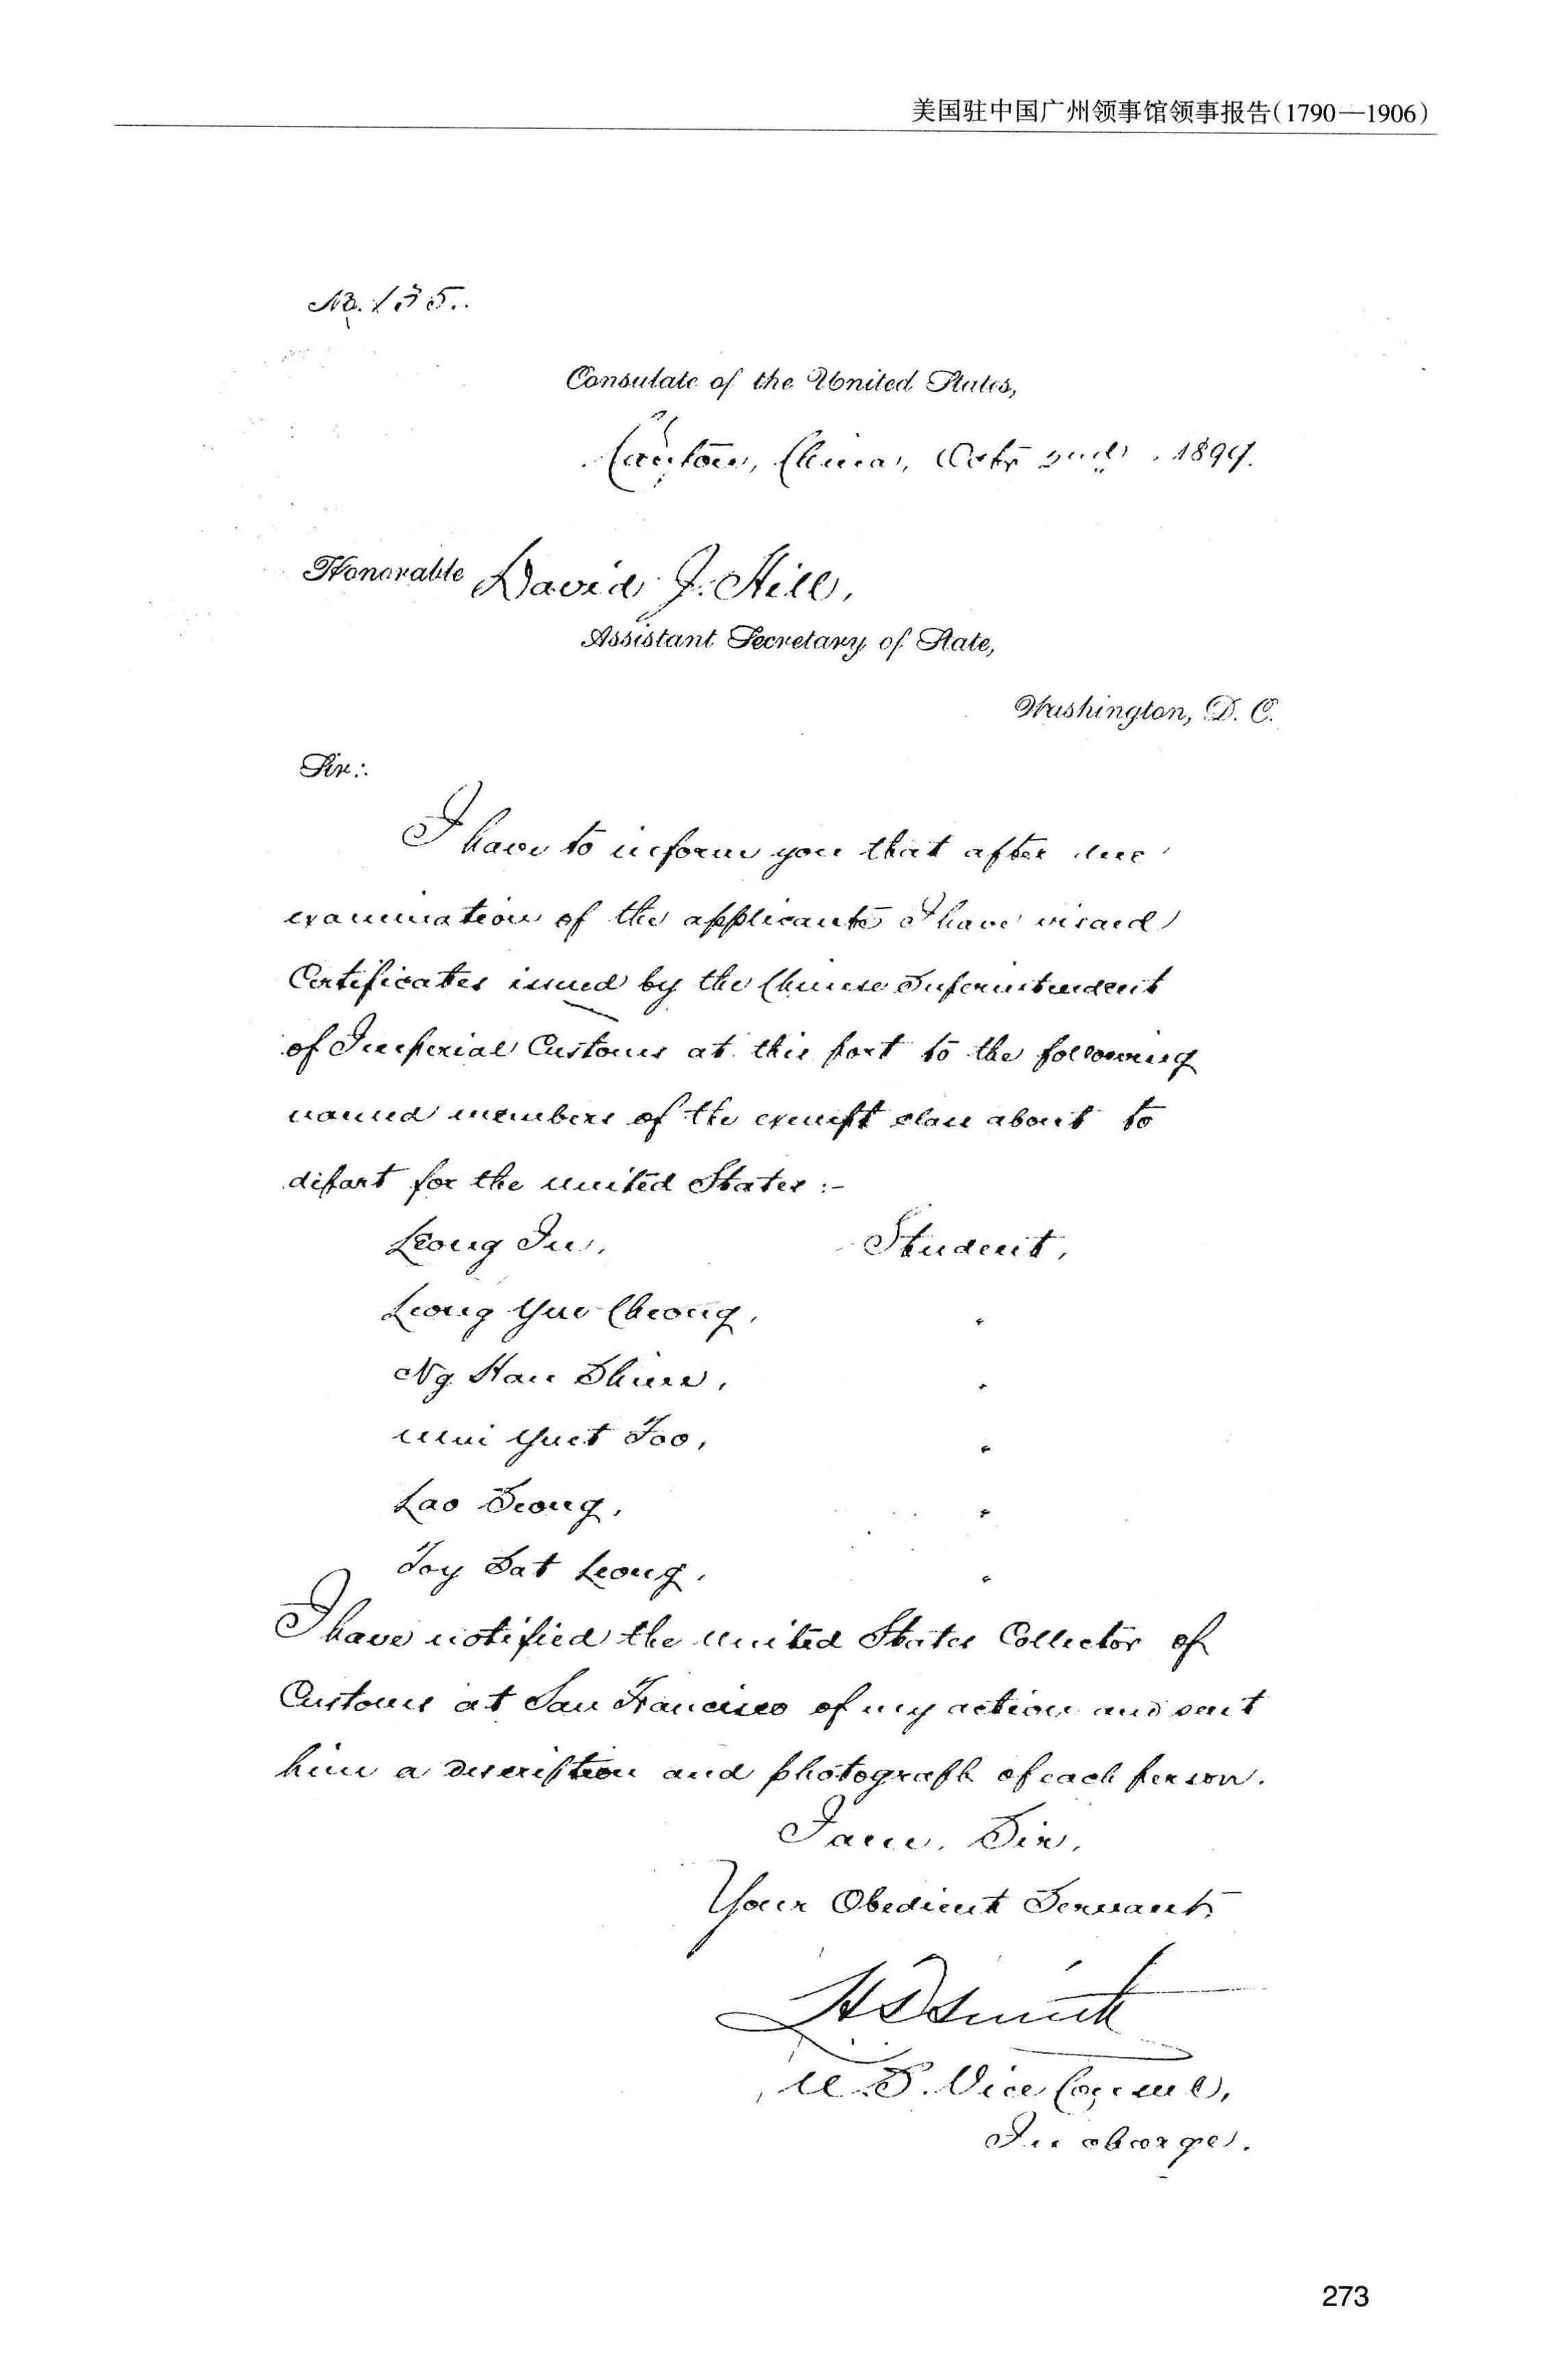 美国驻中国广州领事馆领事报告(1790—1906)
No. 135.
Consulate of the United States,
Canton, China, Octr 2nd, 1899.
Honorable David J. Hill,
Assistant Secretary of State,
Washington, D. C.
Sir:
I have to inform you that after due
examination of the applicants I have visaed
Certificates issued by the Chinese Superintendent
of Imperial Customs at this port to the following
named members of the exempt class about to
depart for the United States :-
Leong Ju, Student,
Leong Yue Cheong, "
Ng Han Shun, "
Mui Yuet Foo, "
Lao Seong, "
Toy Sat Leong, "
I have notified the United States Collector of
Customs at San Francisco of my action and sent
him a description and photograph of each person.
I am, Sir,
Your Obedient Servant,
H D Smith
U. S. Vice Consul,
In charge.
273